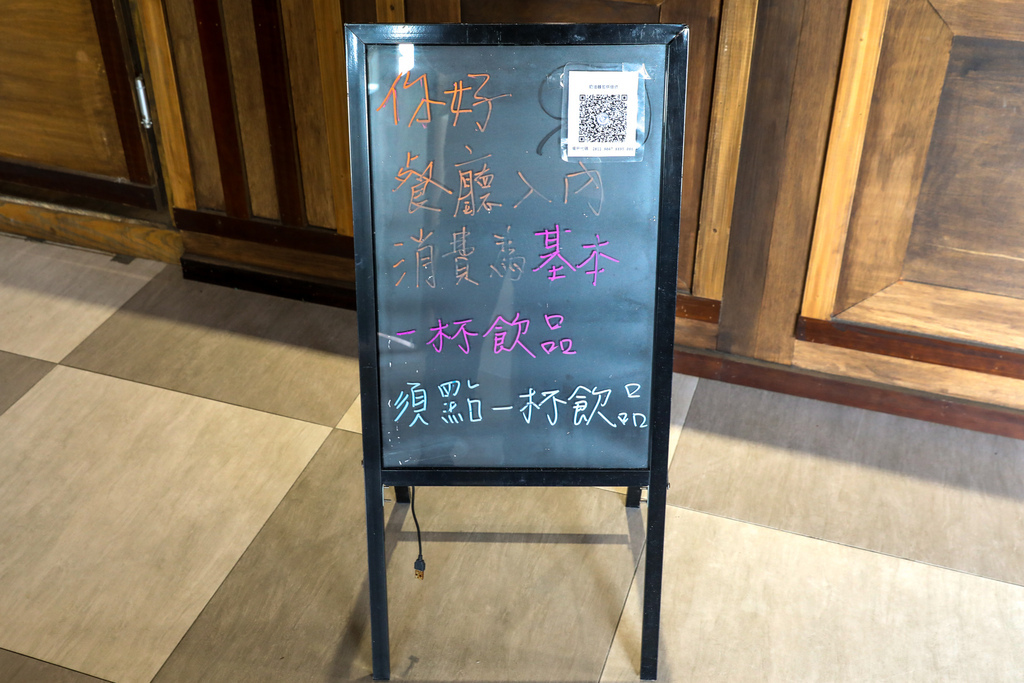 你好
餐廳入內
消費為基本
一杯飲品
須點一杯飲品